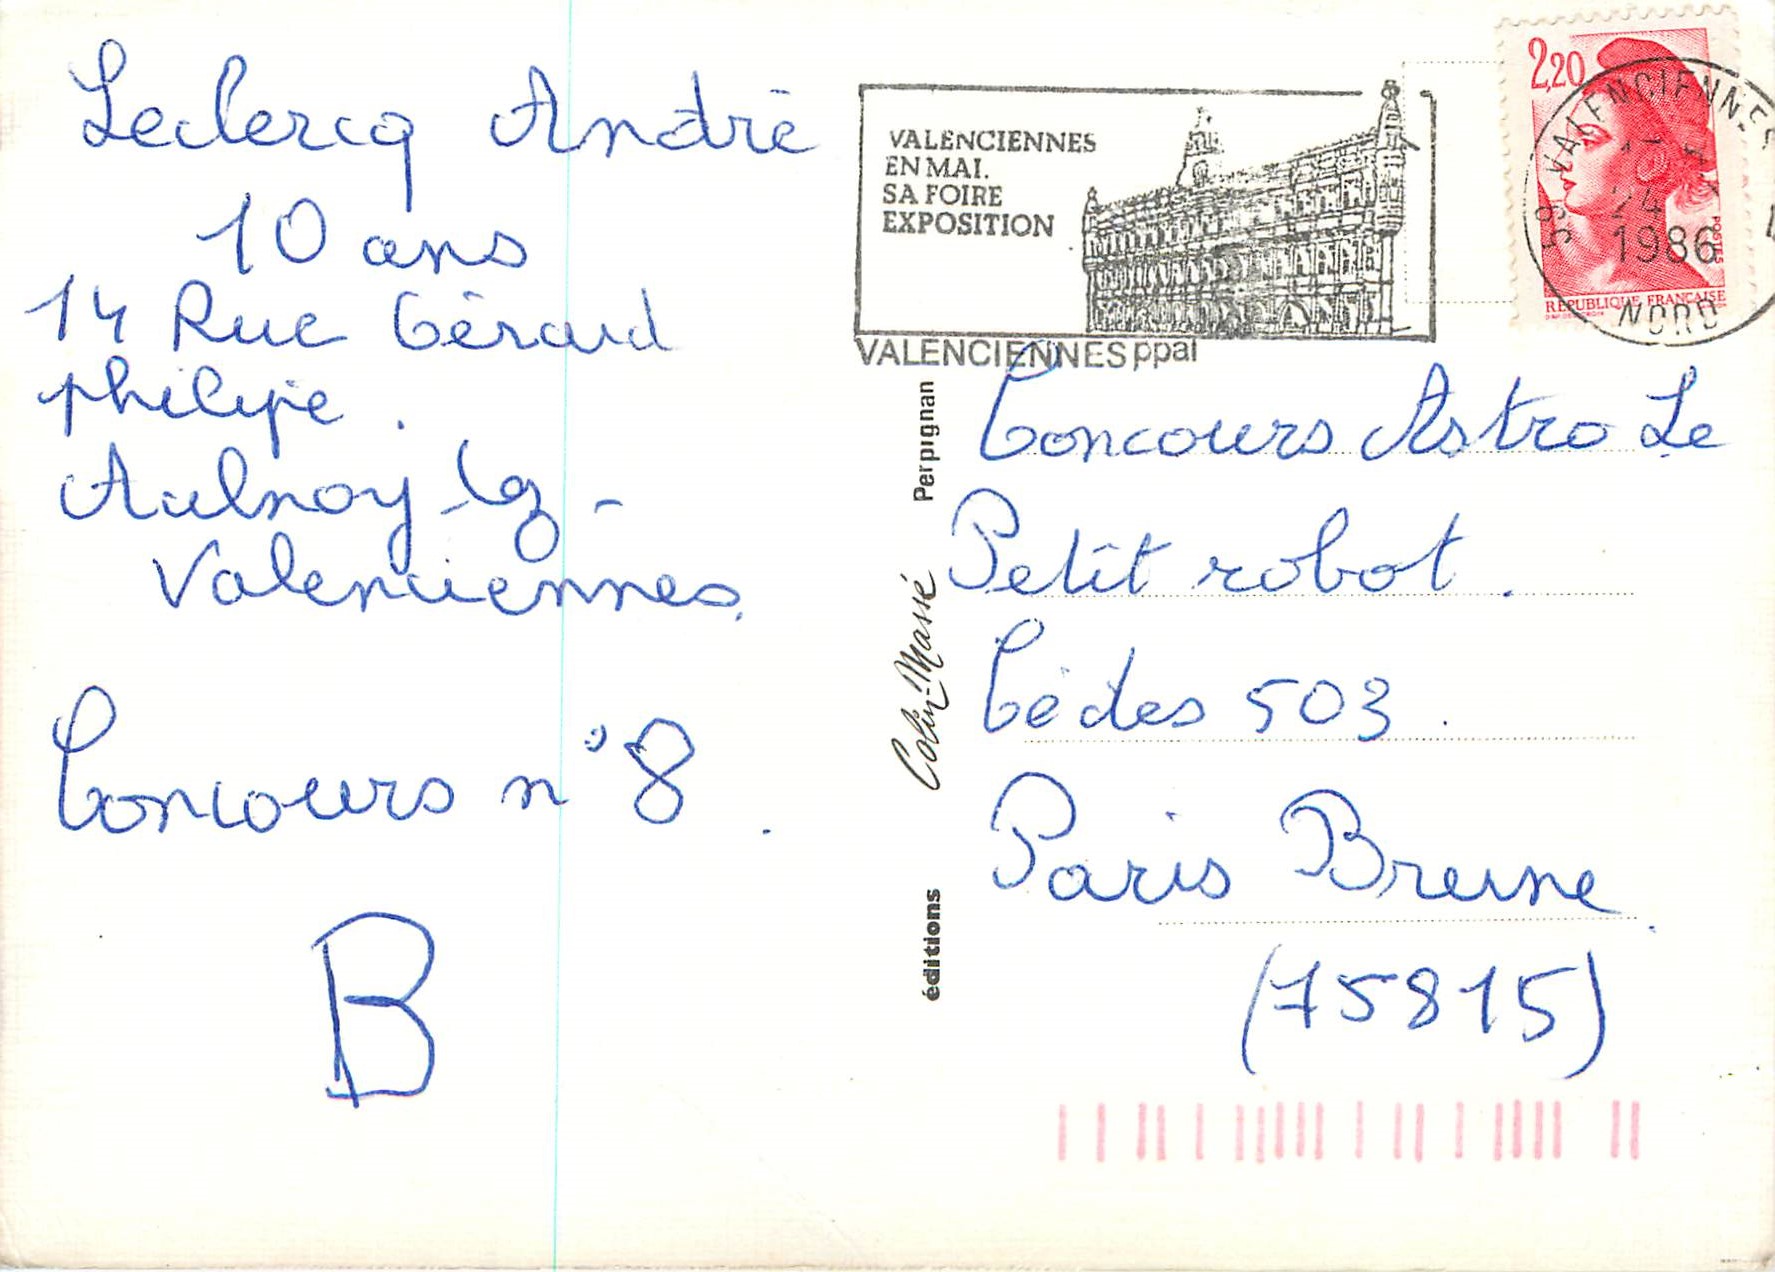 Leclercq André
10 ans
14 Rue Gérard
philipe.
Aulnoy-lez-
Valenciennes.
Concours n°8.
B
VALENCIENNES
EN MAI.
SA FOIRE
EXPOSITION
VALENCIENNES ppal
2,20
POSTES
REPUBLIQUE FRANÇAISE
59 VALENCIENNES
24
1986
NORD
éditions Colin-Massé Perpignan
Concours Astro Le
Petit robot.
Cédes 503.
Paris Breune.
(75815)